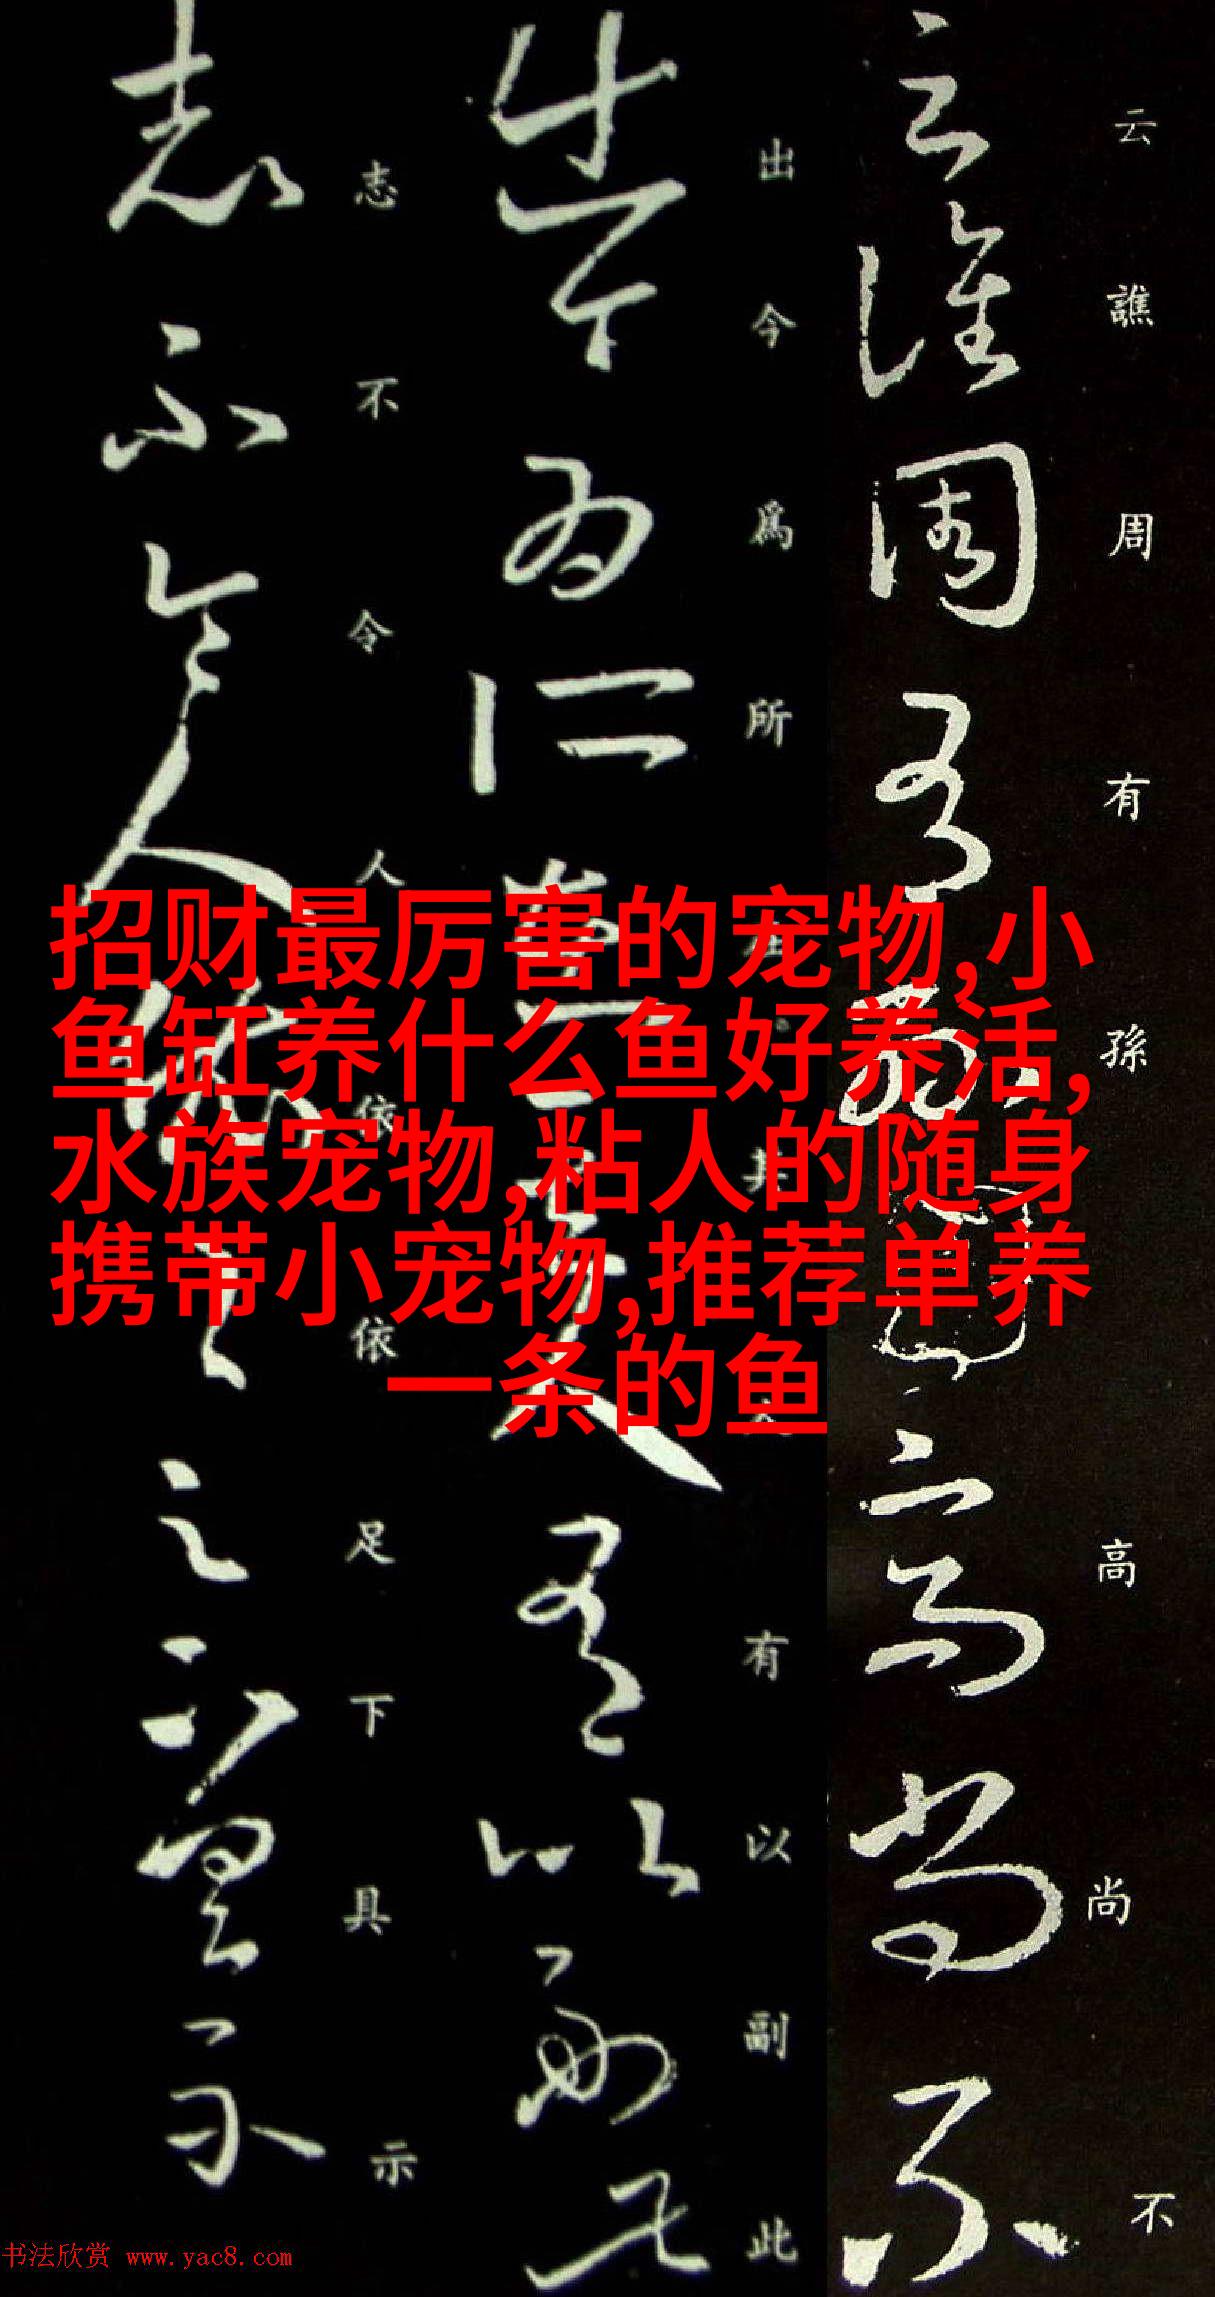 云譙周有孫高尚不
出今為所在其人有以副此
志不令人依依足下具示
招财最厉害的宠物,小
鱼缸养什么鱼好养活,
水族宠物,粘人的随身
携带小宠物,推荐单养
一条的鱼
书法欣赏 www.yac8.com